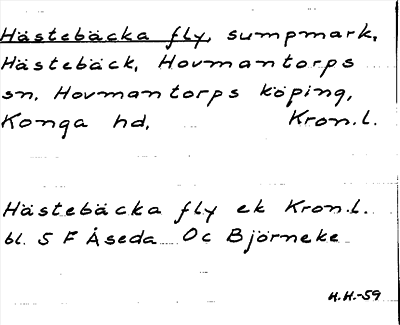 Hästebäcka fly, sumpmark,
Hästebäck, Hovmantorps
sn. Hovmantorps köping,
Konga hd, Kron.l.
Hästebäcka fly ek Kron.l.
bl. 5 F Åseda Oc Björneke
H.H.-59